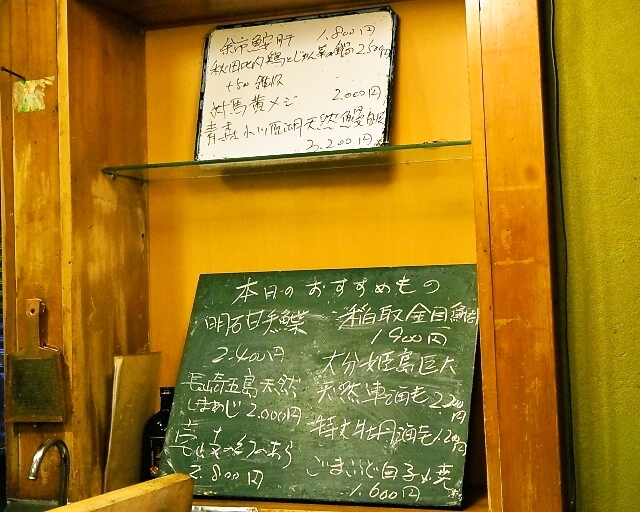 余市鮟肝 1,800円
秋田比内鶏とじゅんさい鍋 2,500円
+500 雑炊
対馬黄メジ 2,000円
青森小川原湖天然鰻
3,200円
本日のおすすめもの
明石甘鯛 2,400円
長崎五島天然
しまあじ 2,000円
2,800円
稲取金目鯛 1,900円
大分姫島巨大
天然車海老 2,200円
特大牡丹海老 1,200円
白子焼
1,600円